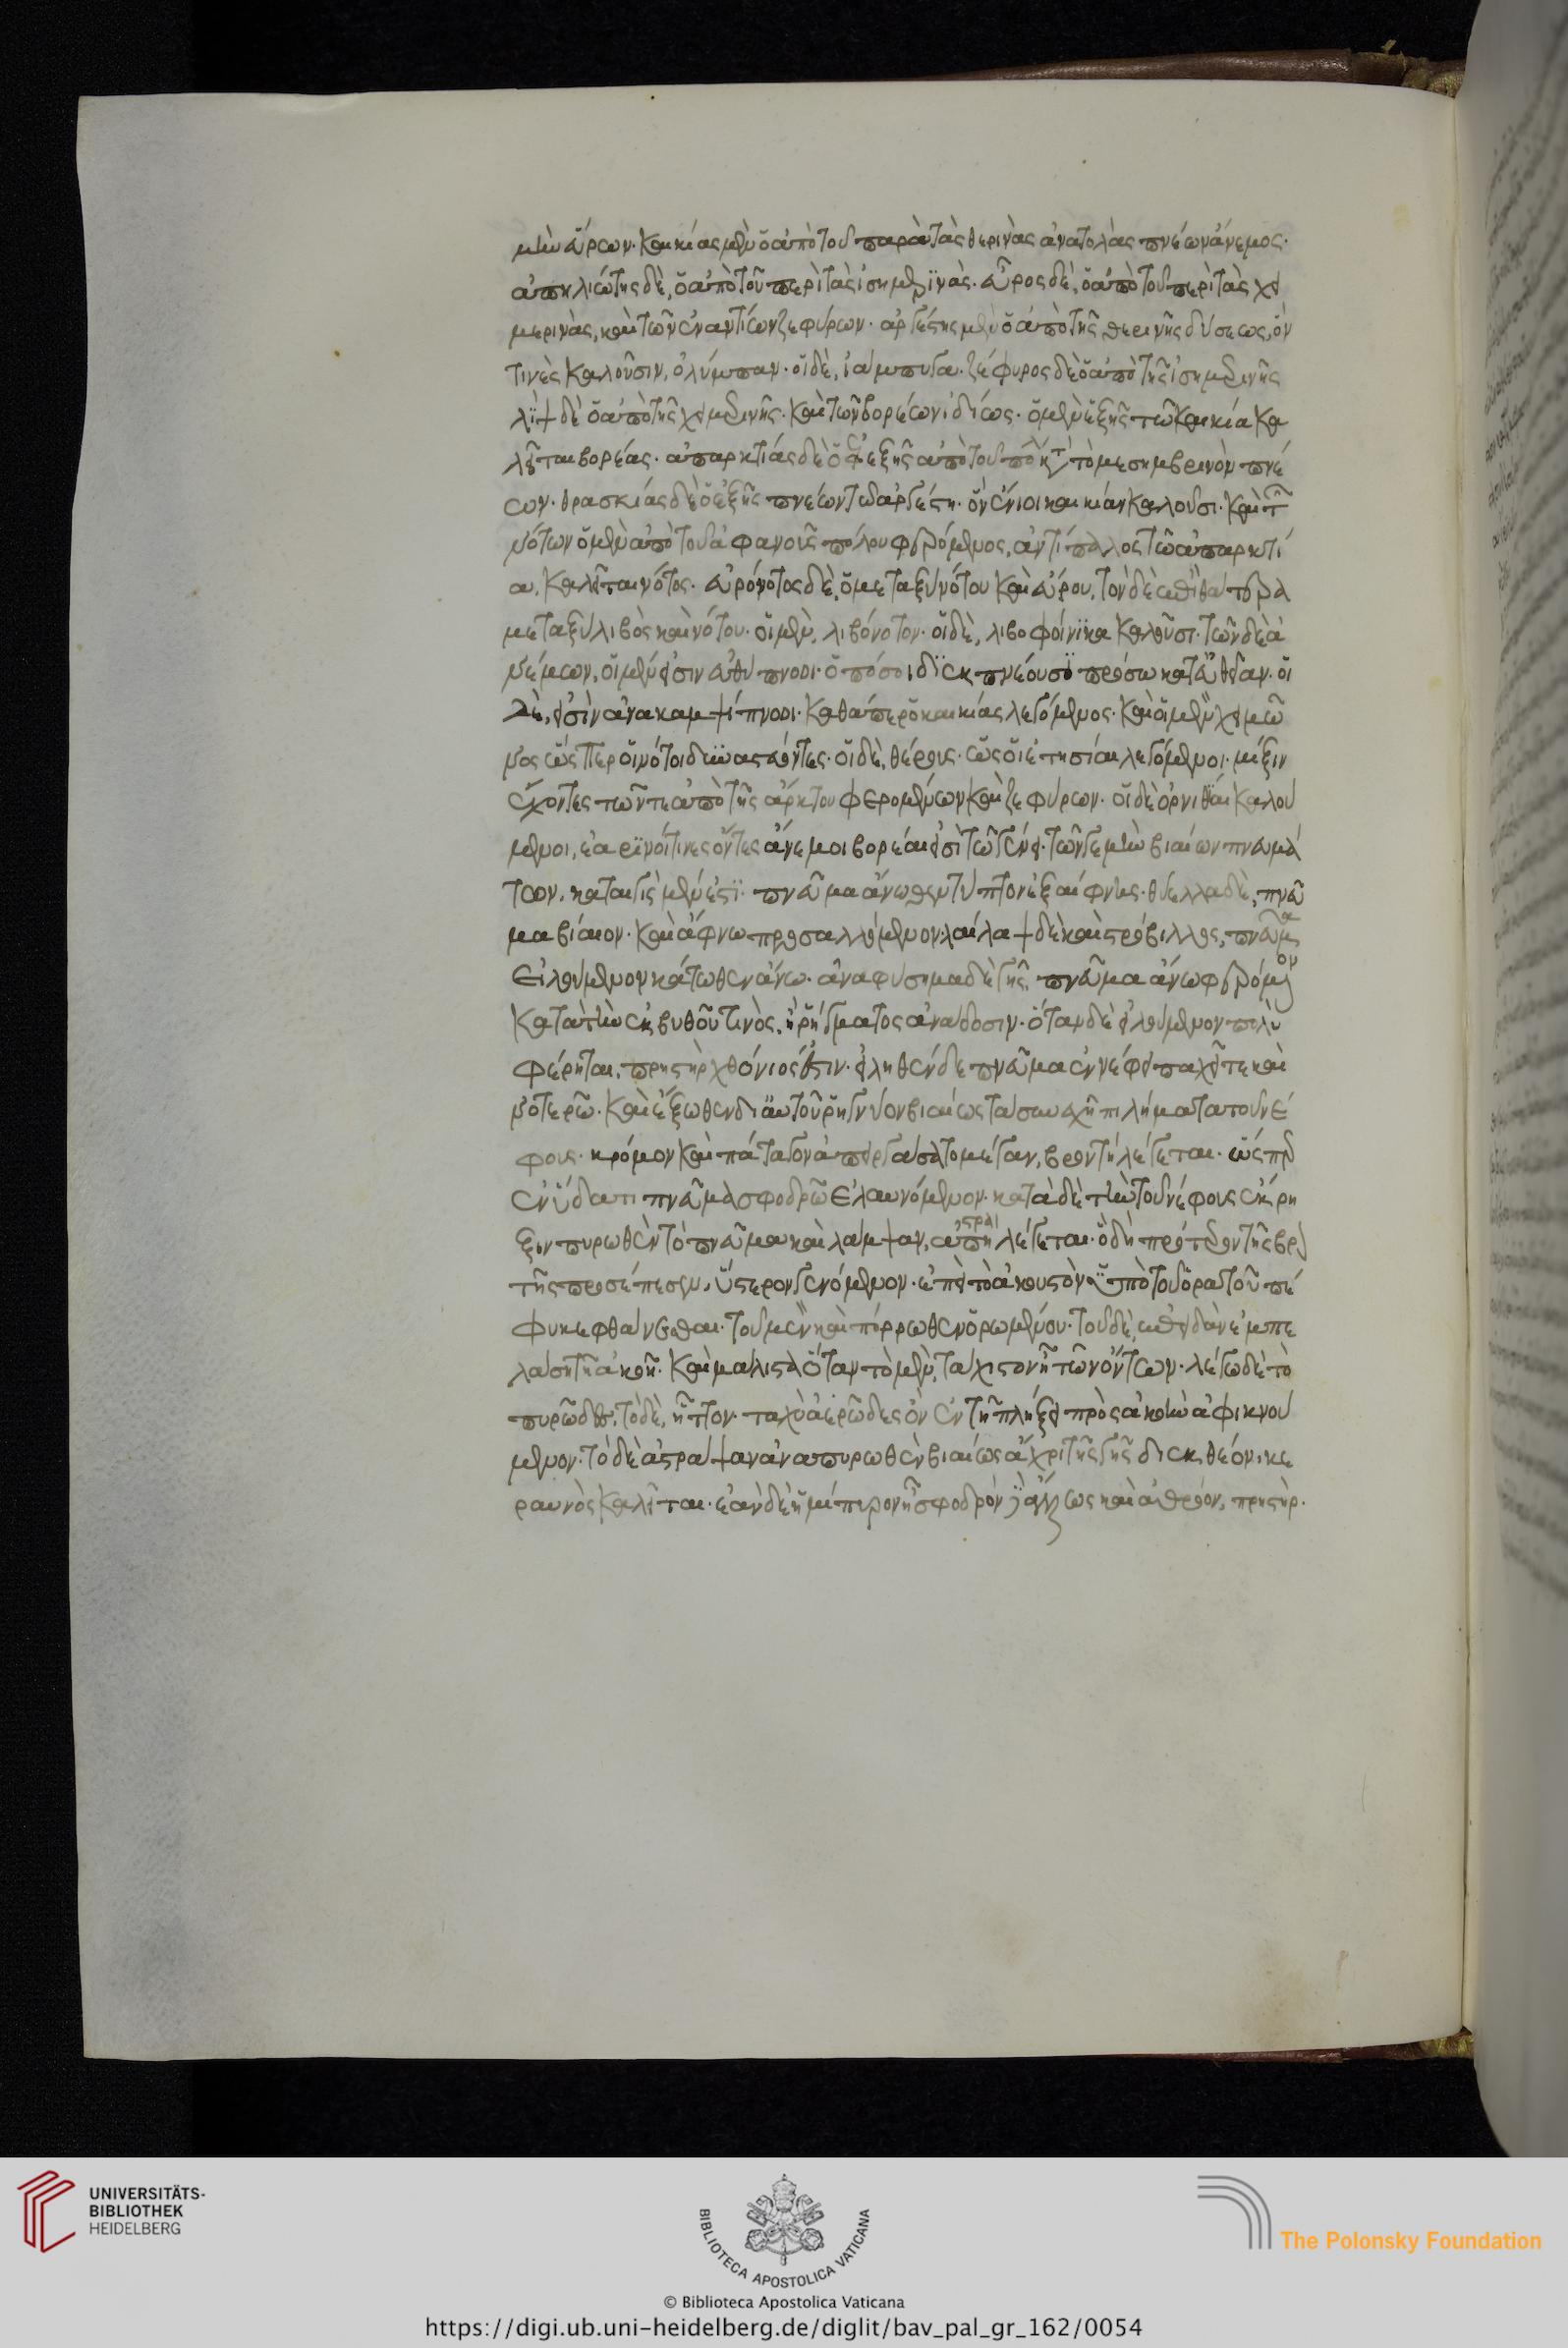 μὴν εὔρων. καικίας μὲν ὁ ἀπὸ τοῦ παρὰ τὰς θερινὰς ἀνατολὰς πνέων ἄνεμος.
ἀπηλιώτης δὲ, ὁ ἀπὸ τοῦ περὶ τὰς ἰσημερϊνάς. εὖρος δὲ, ὁ ἀπὸ τοῦ περὶ τὰς χει
μερινὰς, καὶ τῶν ἐναντίων ζεφύρων. ἀργέστης μὲν ὁ ἀπὸ τῆς θερινῆς δύσεως, ὅν
τινὲς καλοῦσιν, ὀλύμπαν. οἱ δὲ, ἰάμπυγα. ζέφυρος δὲ ὁ ἀπὸ τῆς ἰσημερινῆς
λὶψ δὲ ὁ ἀπὸ τῆς χειμερινῆς. καὶ τῶν βορέων ἰδίως. ὁ μὲν ἑξῆς τῶ καικία κα
λεῖται βορέας. ἀπαρκτίας δὲ ὁ ἐφεξῆς ἀπὸ τοῦ πόλου κατὰ τὸ μεσημβρινὸν πνέ
ων. θρασκίας δὲ ὁ ἑξῆς πνέων τῶ ἀργέστη. ὃν ἔνιοι καικίαν καλοῦσι. καὶ τῶν
νότων ὁ μὲν ἀπὸ τοῦ ἀφανοῦς πόλου φερόμενος, ἀντίπαλος τῶ ἀπαρκτί
α, καλεῖται νότος. εὐρόνοτος δὲ, ὁ μεταξὺ νότου καὶ εὔρου. τὸν δὲ ἐπὶ θάτερα
μεταξὺ λιβὸς καὶ νότου. οἱ μὲν, λιβόνοτον. οἱ δὲ, λιβοφοίνϊκα καλοῦσι. τῶν δὲ ἀ
νέμων, οἱ μέν εἰσιν εὐθύπνοοι. ὁπόσοι διεκπνέουσι πρόσω κατ' εὐθεῖαν. οἱ
δὲ, εἰσὶν ἀνακαμψίπνοοι. καθάπερ ὁ καικίας λεγόμενος. καὶ οἱ μὲν χειμῶ
νος ὥσπερ οἱ νότοι δυναστεύοντες. οἱ δὲ, θέρους. ὡς οἱ ἐτησίαι λεγόμενοι. μίξιν
ἔχοντες τῶν τε ἀπὸ τῆς ἄρκτου φερομένων καὶ ζεφύρων. οἱ δὲ ὀρνιθίαι καλού
μενοι, ἐαρϊνοί τινες ὄντες ἄνεμοι βορέαι εἰσὶ τῶ γένει. τῶν γε μὴν βιαίων πνευμά
των, καταιγὶς μέν ἐστϊ. πνεῦμα ἄνωθεν τύπτον ἐξαίφνης. θύελλα δὲ, πνεῦ
μα βίαιον. καὶ ἄφνω προσαλλόμενον. λαίλαψ δὲ καὶ στρόβιλλος, πνεῦμα
εἰλούμενον κάτωθεν ἄνω. ἀναφύσημα δὲ γῆς, πνεῦμα ἄνω φερόμενον
κατὰ τὴν ἐκ βυθοῦ τινὸς, ἢ ῥήγματος ἀνάδοσιν. ὅταν δὲ εἰλούμενον πολὺ
φέρηται, πρηστὴρ χθόνιός ἐστιν. εἰληθὲν δὲ πνεῦμα ἐν νέφει παχεῖ τε καὶ
νοτερῶ. καὶ ἔξωθεν δι' αὐτοῦ ῥηγνύον βιαίως τὰ συνεχῆ πιλήματα τοῦ νέ
φους. κρόμον καὶ πάταγον ἀπειργάσατο μέγαν, βροντὴ λέγεται. ὥσπερ
ἐν ὕδατι πνεῦμα σφοδρῶς ἐλαυνόμενον. κατὰ δὲ τὴν τοῦ νέφους ἔκρη
ξιν πυρωθὲν τὸ πνεῦμα καὶ λάμψαν, ἀστραπὴ λέγεται. ὃ δὴ πρότερον τῆς βρον
τῆς προσέπεσεν, ὕστερον γενόμενον. ἐπεὶ τὸ ἀκουστὸν ὑπὸ τοῦ ὁρατοῦ πέ
φυκε φθάνεσθαι. τοῦ μὲν καὶ πόρρωθεν ὁρωμένου. τοῦ δὲ, ἐπειδὰν ἐμπε
λάση τῆ ἀκοῆ. καὶ μάλιστα ὅταν τὸ μὲν, τάχιστον ἦ τῶν ὄντων. λέγω δὲ τὸ
πυρῶδες. τὸ δὲ, ἧττον. ταχὺ ἀερῶδες ὂν ἐν τῆ πλήξει πρὸς ἀκοὴν ἀφικνού
μενον. τὸ δὲ ἀστράψαν ἀναπυρωθὲν βιαίως ἄχρι τῆς γῆς διεκθέον, κε
ραυνὸς καλεῖται. ἐὰν δὲ ἡμίπυρον ἦ σφοδρὸν δὲ ἄλλως καὶ ἀθρόον, πρηστήρ.
UNIVERSITÄTS-
BIBLIOTHEK
HEIDELBERG
BIBLIOTECA APOSTOLICA VATICANA
The Polonsky Foundation
© Biblioteca Apostolica Vaticana
https://digi.ub.uni-heidelberg.de/diglit/bav_pal_gr_162/0054